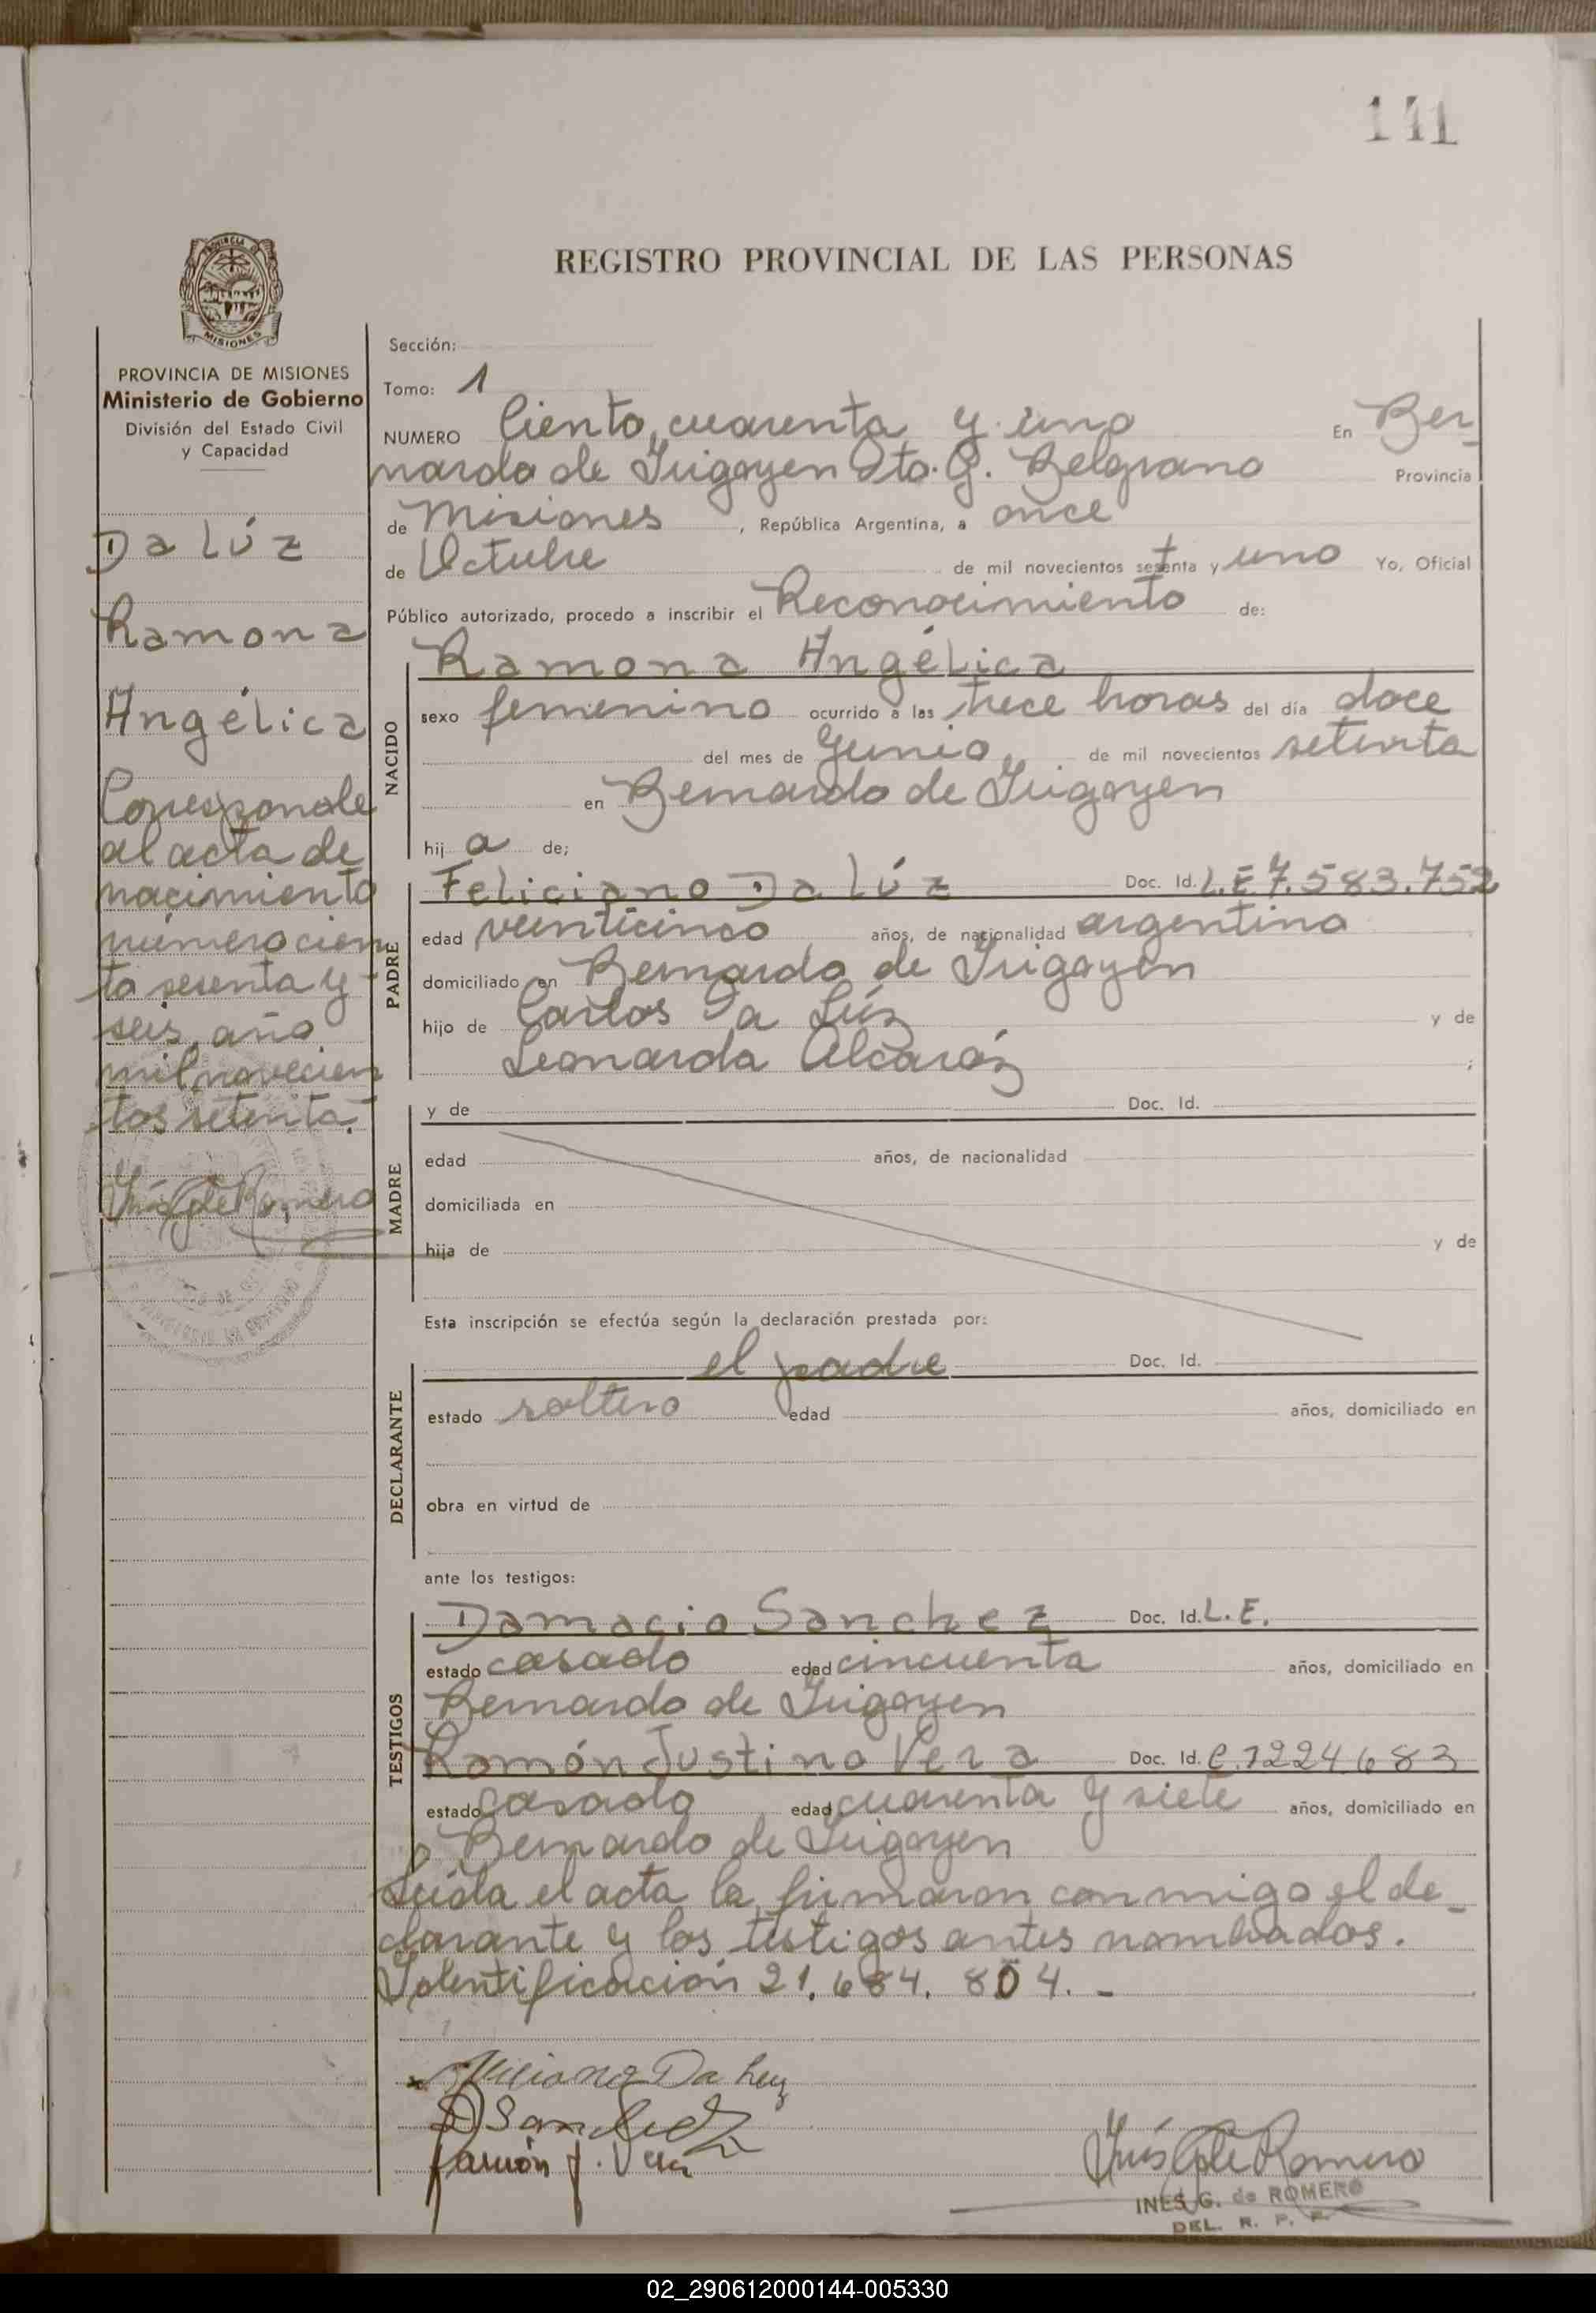 141
REGISTRO PROVINCIAL DE LAS PERSONAS
MISIONES
PROVINCIA DE MISIONES
Ministerio de Gobierno
División del Estado Civil
y Capacidad
Da Lúz
Ramona
Angélica
Corresponde
al acta de
nacimiento
número cien
to sesenta y
seis, año
mil novecien
tos setenta.
Inés G de Romero
Sección:
Tomo: 1
NUMERO Ciento cuarenta y uno En Ber_
nardo de Irigoyen Dto. G. Belgrano Provincia
de Misiones, República Argentina, a once
de Octubre de mil novecientos setenta y uno Yo, Oficial
Público autorizado, procedo a inscribir el Reconocimiento de:
NACIDO
Ramona Angélica
sexo femenino ocurrido a las trece horas del día doce
del mes de Junio de mil novecientos setenta
en Bernardo de Irigoyen
hij a de;
PADRE
Feliciano Da Lúz Doc. Id. L.E 7.583.752
edad veinticinco años, de nacionalidad argentina
domiciliado en Bernardo de Irigoyen
hijo de Carlos Da Lúz y de
Leonarda Alcaráz ;
MADRE
y de Doc. Id.
edad años, de nacionalidad
domiciliada en
hija de y de
Esta inscripción se efectúa según la declaración prestada por:
DECLARANTE
el padre Doc. Id.
estado soltero edad años, domiciliado en
obra en virtud de
ante los testigos:
TESTIGOS
Damacio Sanchez Doc. Id. L.E.
estado casado edad cincuenta años, domiciliado en
Bernardo de Irigoyen
Ramón Justino Vera Doc. Id. C.1224.683
estado casado edad cuarenta y siete años, domiciliado en
Bernardo de Irigoyen
Leída el acta la firmaron conmigo el de_
clarante y los testigos antes nombrados.
Identificación 21.684.804.-
x Feliciano Da Luz
D Sanchez
Ramón J. Vera
Inés G de Romero
INES G. de ROMERO
DEL. R. P. P.
02_290612000144-005330